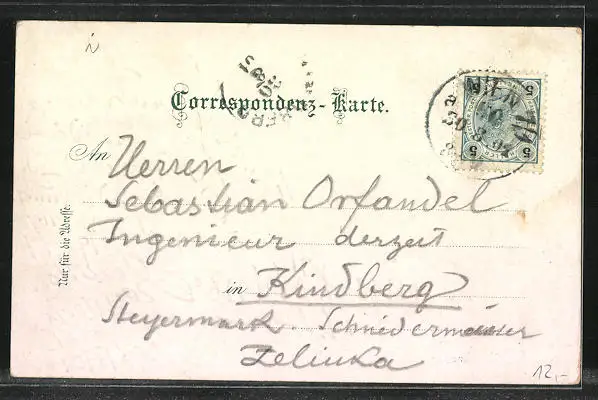 Correspondenz-Karte.
An Herren
Sebastian Orfandel
Ingenieur derzeit
in Kindberg
Steyermark Schniedermeister
Zelinka
Nur für die Adresse.
WIEN
5 5
5 5
12,-